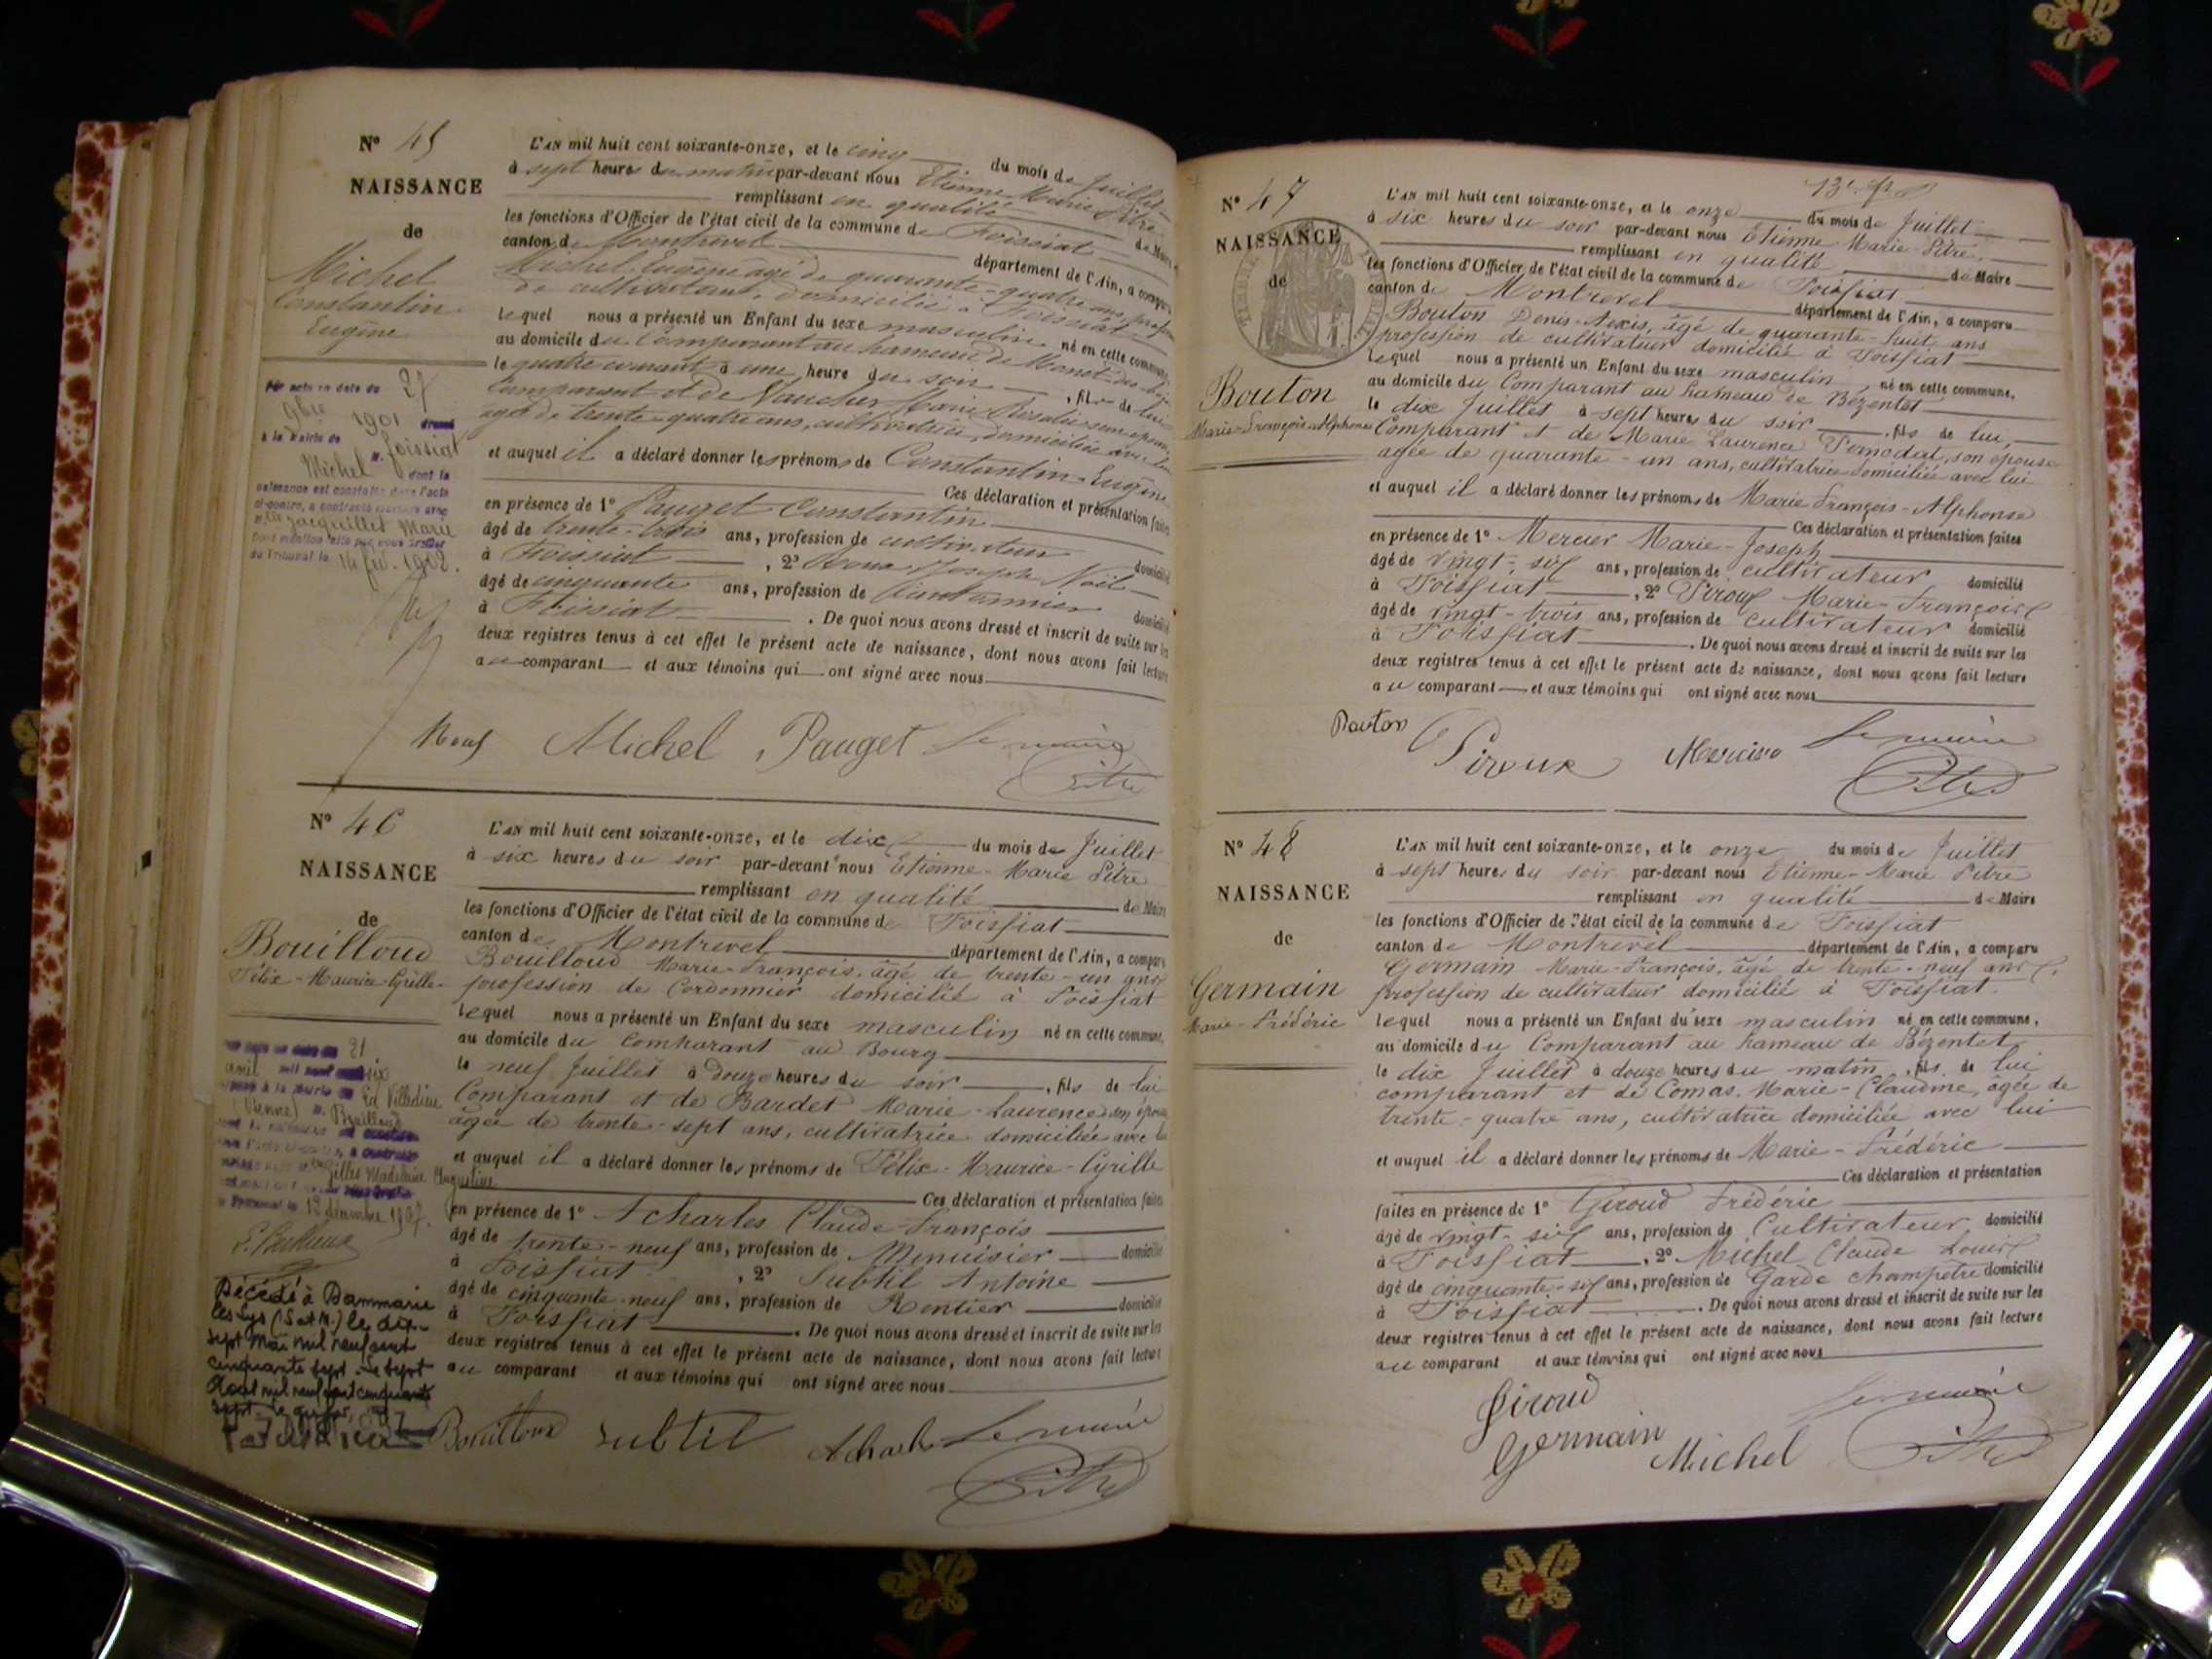 N° 45
NAISSANCE
de
Michel
Constantin
Eugène
Par acte en date du 27
9bre 1901 dressé
à la Mairie de foissiat
Michel dont la
naissance est constatée dans l'acte
ci-contre, a contracté mariage avec
Jacquillet Marie
Dont mention faite par nous Greffier
du Tribunal le 14 fév. 1902.
L'AN mil huit cent soixante-onze, et le cinq du mois de Juillet
à sept heures du matin par-devant nous Etienne Marie Pitre
remplissant en qualité de Maire
les fonctions d'Officier de l'état civil de la commune de Foissiat
canton de Montrevel département de l'Ain, a comparu
Michel Eugène âgé de quarante-quatre ans, profession
de cultivateur, domicilié à Foissiat
lequel nous a présenté un Enfant du sexe masculin né en cette commune
au domicile du Comparant au hameau de
le quatre courant à une heure du soir, fils de lui
Comparant et de Vaucher Marie Rosalie son épouse
agée de trente-quatre ans, cultivatrice, domiciliée avec lui
et auquel il a déclaré donner les prénoms de Constantin-Eugène
Ces déclaration et présentation faites
en présence de 1° Pauget Constantin
âgé de trente-trois ans, profession de cultivateur domicilié
à Foissiat, 2° Joseph Noël
âgé de cinquante ans, profession de domicilié
à Foissiat. De quoi nous avons dressé et inscrit de suite sur les
deux registres tenus à cet effet le présent acte de naissance, dont nous avons fait lecture
au comparant et aux témoins qui ont signé avec nous
Michel Pauget Le maire
Pitre
N° 46
NAISSANCE
de
Bouilloud
Félix-Maurice-Cyrille
21
avril mil neuf six
à la Mairie de
(Vienne) Bouilloud
Gilles Madeleine Augustine
le 13 décembre 1907.
Décédé à Dammarie
les Lys (S et M.) le dix-
sept Mai mil neuf cent
cinquante sept. Le sept
Août mil neuf cent cinquante
sept, le greffier,
L'AN mil huit cent soixante-onze, et le dix du mois de Juillet
à six heures du soir par-devant nous Etienne-Marie Pitre
remplissant en qualité de Maire
les fonctions d'Officier de l'état civil de la commune de Foissiat
canton de Montrevel département de l'Ain, a comparu
Bouilloud Marie-François, âgé de trente-un ans
profession de Cordonnier domicilié à Foissiat
lequel nous a présenté un Enfant du sexe masculin né en cette commune,
au domicile du comparant au Bourg
le neuf Juillet à douze heures du soir, fils de lui
Comparant et de Bardet Marie-Laurence son épouse
âgée de trente-sept ans, cultivatrice domiciliée avec lui
et auquel il a déclaré donner les prénoms de Félix-Maurice-Cyrille
Ces déclaration et présentation faites
en présence de 1° Acharles Claude-François
âgé de trente-neuf ans, profession de Menuisier domicilié
à Foissiat, 2° Subtil Antoine
âgé de cinquante-neuf ans, profession de Rentier domicilié
à Foissiat. De quoi nous avons dressé et inscrit de suite sur les
deux registres tenus à cet effet le présent acte de naissance, dont nous avons fait lecture
au comparant et aux témoins qui ont signé avec nous
Bouilloud subtil Acharles Le maire
Pitre
N° 47
NAISSANCE
de
Bouton
Marie-François-Alphonse
L'AN mil huit cent soixante-onze, et le onze du mois de Juillet
à six heures du soir par-devant nous Etienne-Marie-Pitre
remplissant en qualité de Maire
les fonctions d'Officier de l'état civil de la commune de Foissiat
canton de Montrevel département de l'Ain, a comparu
Bouton Denis-Alexis, âgé de quarante-huit ans
profession de cultivateur domicilié à Foissiat
lequel nous a présenté un Enfant du sexe masculin, né en cette commune,
au domicile du Comparant au hameau de Bézentet
le dix Juillet à sept heures du soir, fils de lui,
Comparant et de Marie Laurence Pernodat, son épouse
agée de quarante-un ans, cultivatrice domiciliée avec lui
et auquel il a déclaré donner les prénoms de Marie François-Alphonse
Ces déclaration et présentation faites
en présence de 1° Mercier Marie-Joseph
âgé de vingt-six ans, profession de cultivateur domicilié
à Foissiat, 2° Piroux Marie-François
âgé de vingt-trois ans, profession de cultivateur domicilié
à Foissiat. De quoi nous avons dressé et inscrit de suite sur les
deux registres tenus à cet effet le présent acte de naissance, dont nous avons fait lecture
au comparant et aux témoins qui ont signé avec nous
Bouton Piroux Mercier Le maire
Pitre
N° 48
NAISSANCE
de
Germain
Marie-Frédéric
L'AN mil huit cent soixante-onze, et le onze du mois de Juillet
à sept heures du soir par-devant nous Etienne-Marie Pitre
remplissant en qualité de Maire
les fonctions d'Officier de l'état civil de la commune de Foissiat
canton de Montrevel département de l'Ain, a comparu
Germain Marie-François, âgé de trente-neuf ans,
profession de cultivateur domicilié à Foissiat.
lequel nous a présenté un Enfant du sexe masculin né en cette commune,
au domicile du Comparant au hameau de Bézentet
le dix Juillet à douze heures du matin, fils de lui
comparant et de Comas Marie-Claudine, âgée de
trente-quatre ans, cultivatrice domiciliée avec lui
et auquel il a déclaré donner les prénoms de Marie-Frédéric
Ces déclaration et présentation
faites en présence de 1° Giroud Frédéric
âgé de vingt-six ans, profession de Cultivateur domicilié
à Foissiat, 2° Michel Claude Louis
âgé de cinquante-six ans, profession de Garde champêtre domicilié
à Foissiat. De quoi nous avons dressé et inscrit de suite sur les
deux registres tenus à cet effet le présent acte de naissance, dont nous avons fait lecture
au comparant et aux témoins qui ont signé avec nous
Giroud
Germain Michel Le maire
Pitre